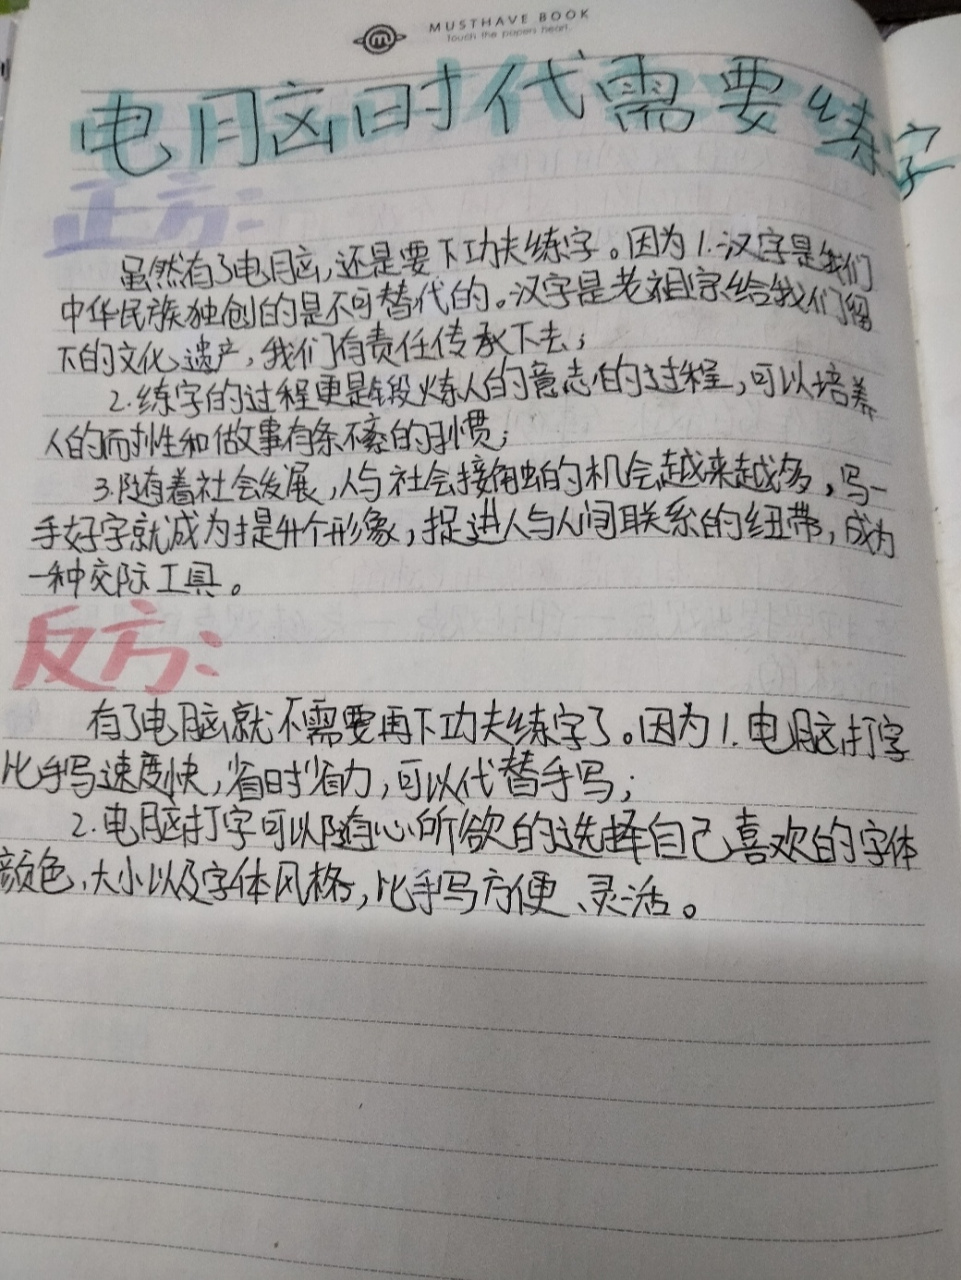 MUSTHAVE BOOK
Touch the papers heart.
电脑时代需要练字
正方：
虽然有了电脑，还是要下功夫练字。因为1.汉字是我们
中华民族独创的是不可替代的。汉字是老祖宗给我们留
下的文化遗产，我们有责任传承下去；
2.练字的过程更是锻炼人的意志的过程，可以培养
人的耐性和做事有条不紊的习惯；
3.随着社会发展，人与社会接触的机会越来越多，写一
手好字就成为提升个形象，捉进人与人间联系的纽带，成为
一种交际工具。
反方：
有了电脑就不需要再下功夫练字了。因为1.电脑打字
比手写速度快，省时省力，可以代替手写；
2.电脑打字可以随心所欲的选择自己喜欢的字体
颜色、大小以及字体风格，比手写方便、灵活。